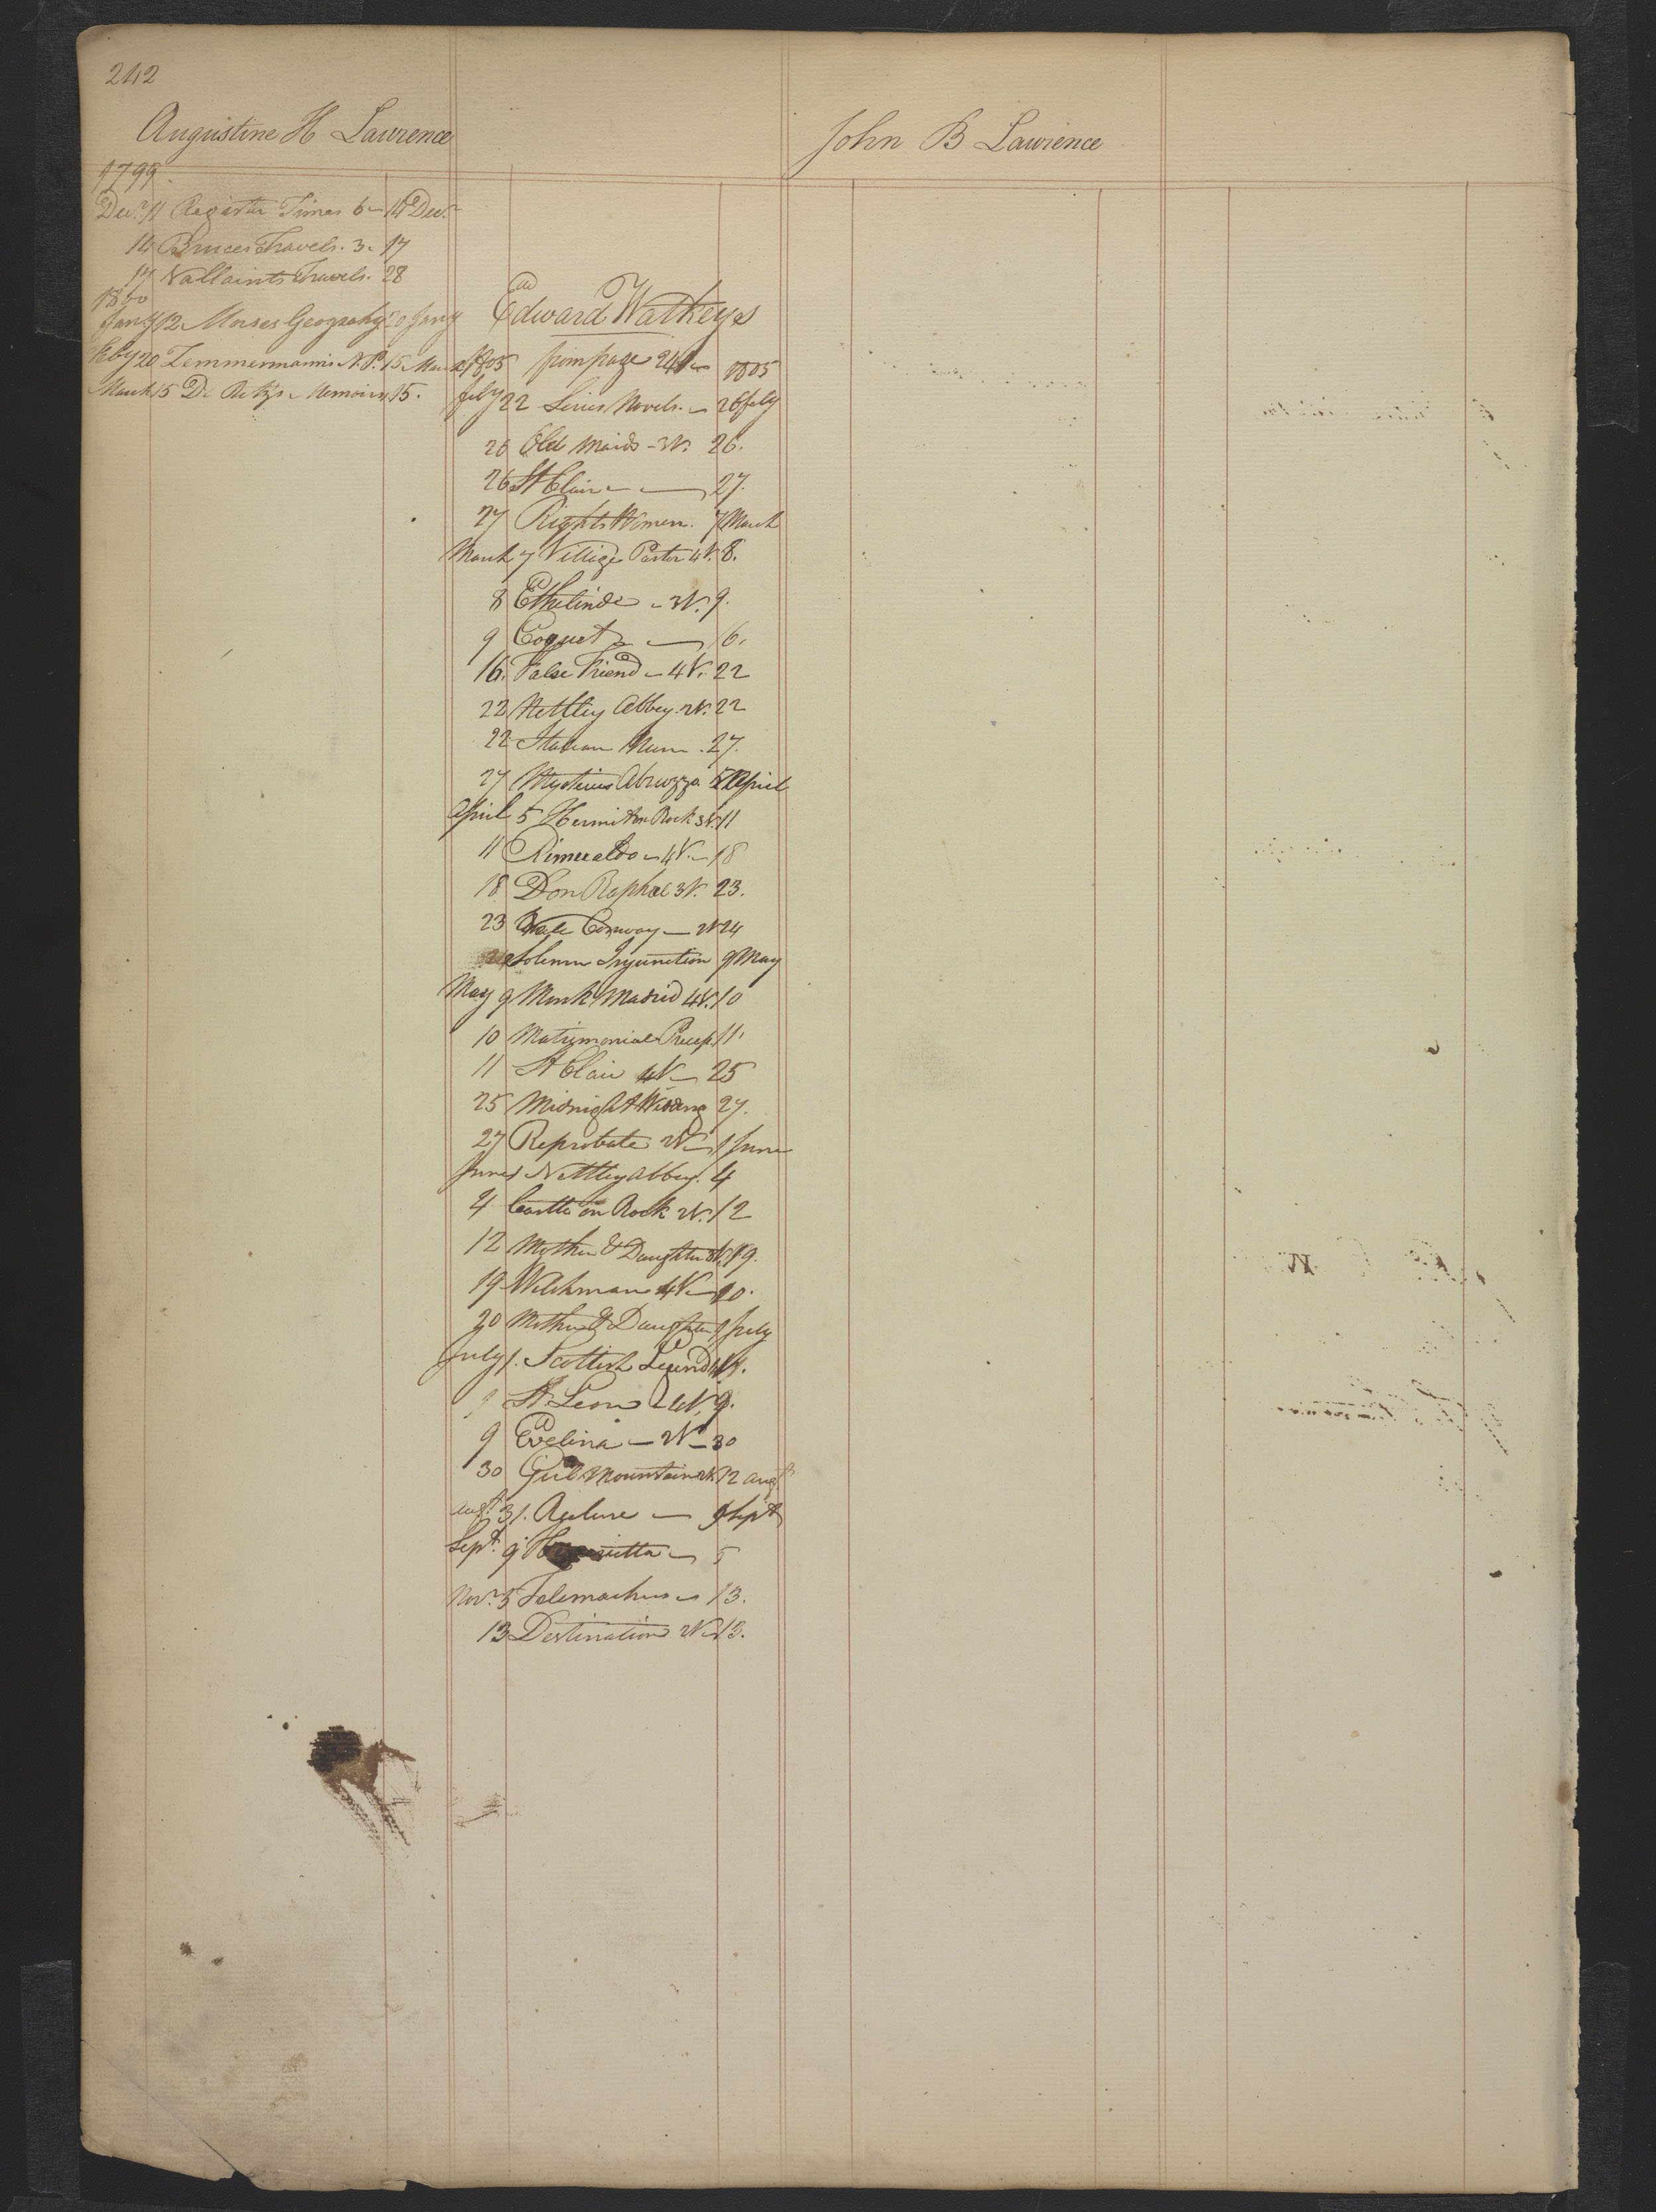 242
Augustine H Lawrence
1799
Decr 11 Register Times 6 14 Decr
14 Bruces Travels. 3. 17
17 Vallaints Travels. 28
1800
Jany 12 Morses Geography 20 Jany
Feby 20 Zemmermanns N.P. 15 March
March 15 De Retz's Memoirs 15.
Edward Watkeys
1805 from page 241 1805
feby 22 Series Novels. 26 feby
26 Old Maids - 3V. 26.
26 St Clair 27.
27 Rights Women. 7 March
March 7 Village Pastor 4V. 8.
8 Ethelinde 3V. 9.
9 Coquet 16.
16. False Friend 4V. 22
22 Nettley Abbey. 2V. 22
22 Italian Nun. 27.
27 Mysteries Abruzza 5 April
April 5 Hermit on Rock 3V. 11
11 Rimueldo 4V. 18
18 Don Raphael 3V. 23.
23 Conway 2V 24
24 Solemn Injunction 9 May
May 9 Monk Madrid 4V. 10
10 Matrimonial Precep. 11.
11 St Clair 4V 25
25 Midnight Weding 27.
27 Reprobate 2V 1 June
June 1 Nettley Abbey. 4
4 Castle on Rock 2V. 12
12 Mother & Daughter 3V. 19.
19 Welchman 4V 20.
20 Mother & Daughter 1 July
July 1. Scottish Legend 4V.
St Leon 4V. 9.
9 Evelina 2V 30
30 Mountain 2V. 12 augt
augt 31. 9 Sept
Sept. 9 Henrietta 5
Novr. 5 Telemachus 13.
13 Destination 2V. 13.
John B Lawrence